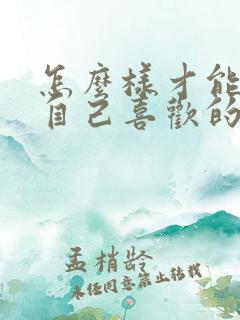 怎麼樣才能
自己喜歡的
孟梢龄
未经同意禁止转载